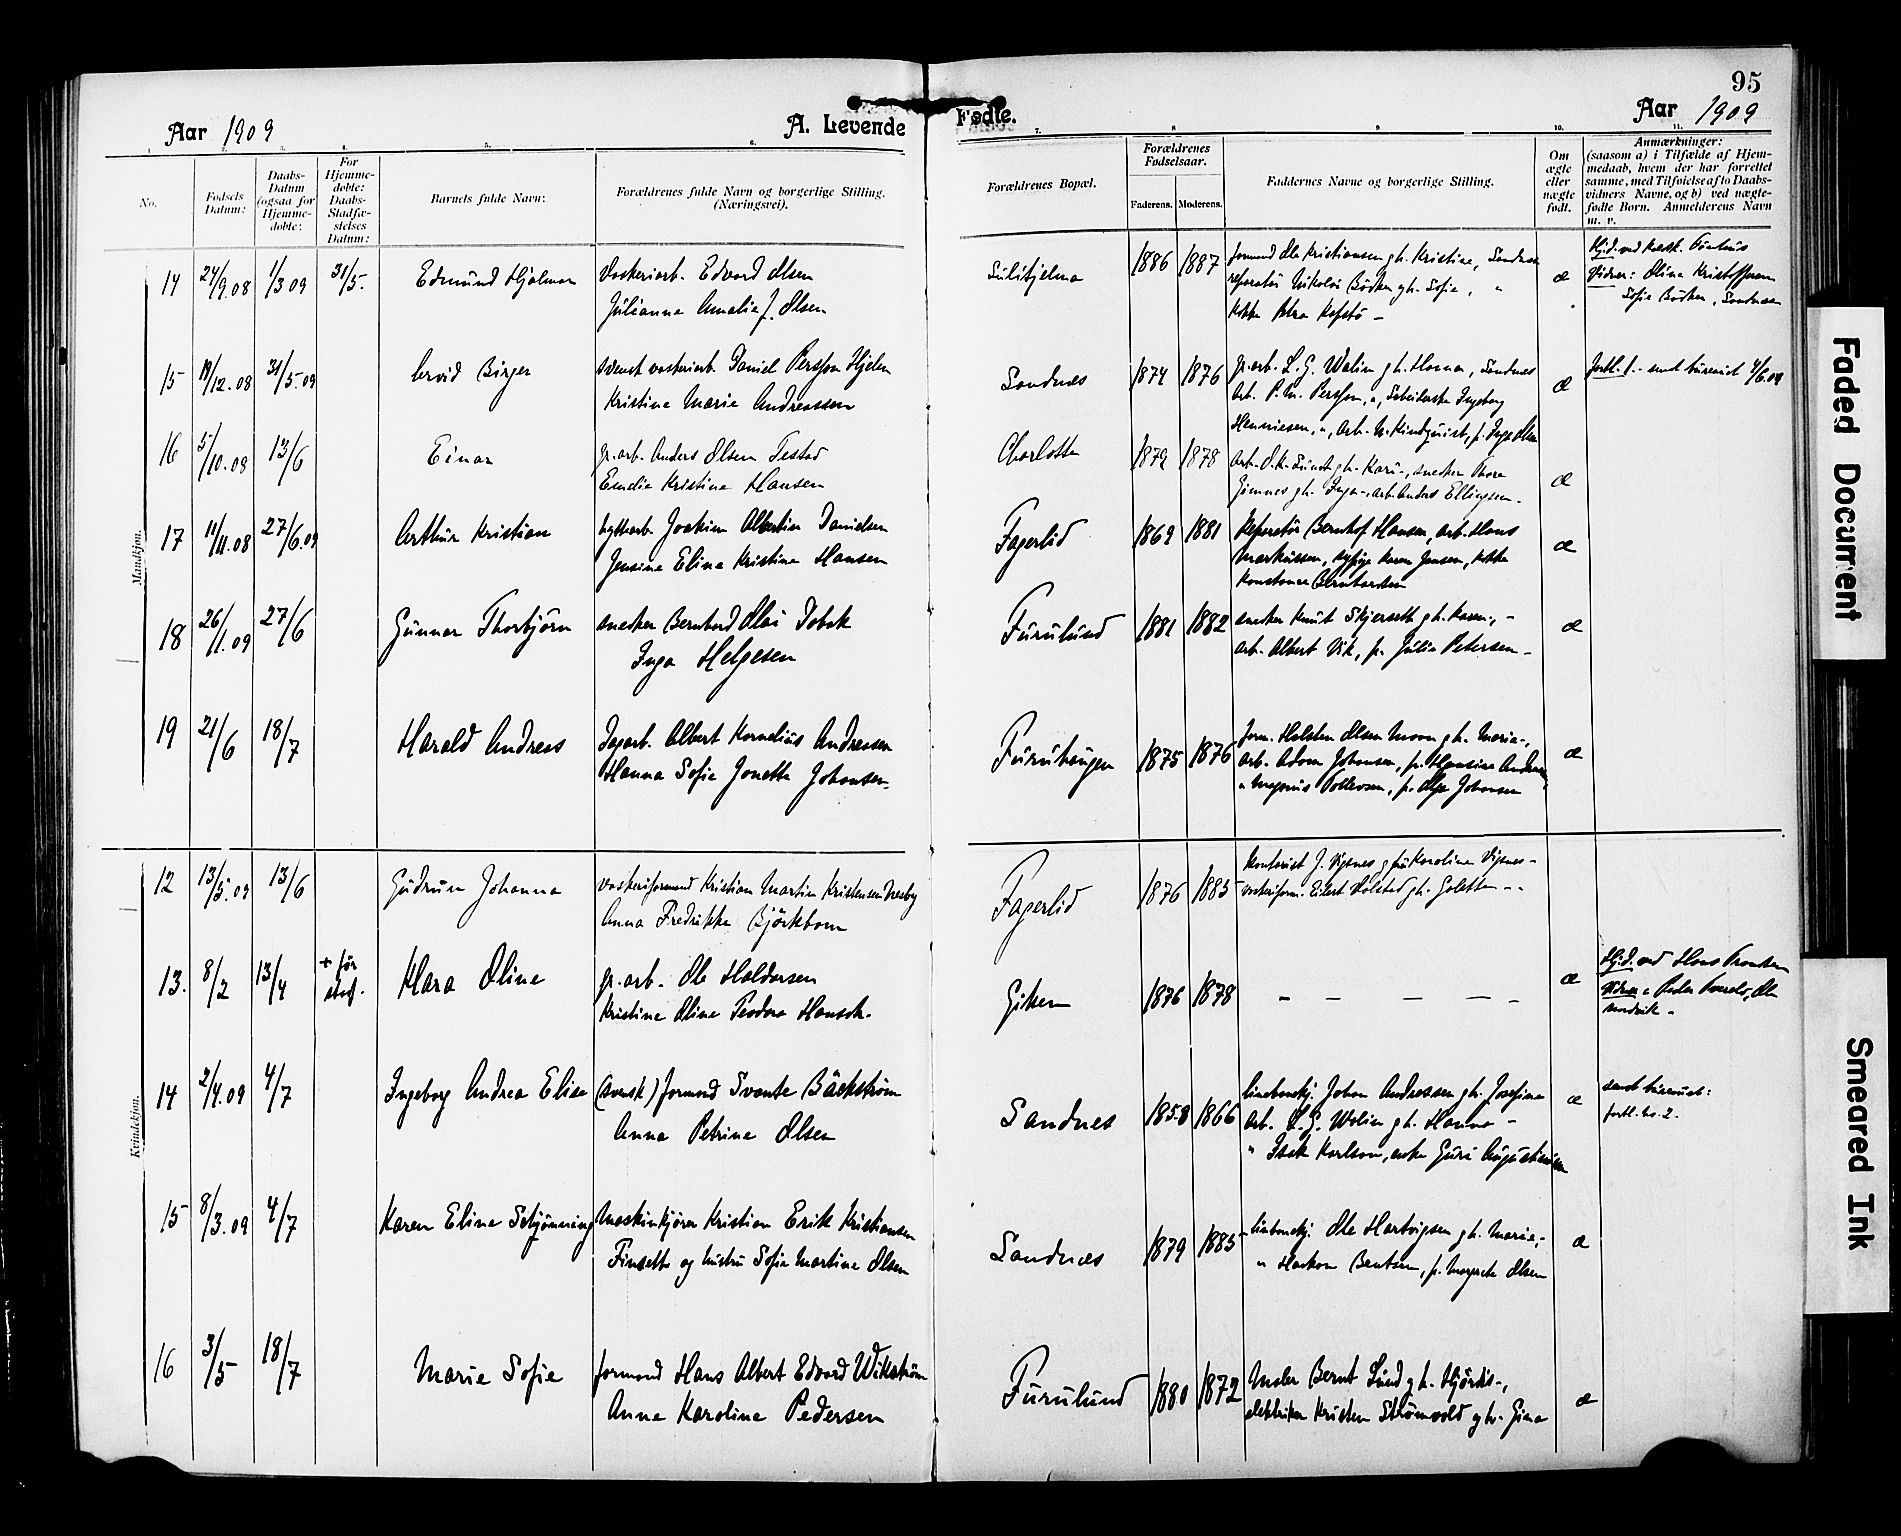 95
Aar 1909
A. Levende
Fødte.
Aar 1909
No.
Fødsels Datum:
Daabs-Datum (ogsaa for Hjemmedøbte:
For Hjemmedøbte: Daabs-Stadfæstelses Datum:
Barnets fulde Navn:
Forældrenes fulde Navn og borgerlige Stilling.
(Næringsvei).
Forældrenes Bopæl.
Forældrenes Fødselsaar.
Faderens. Moderens.
Faddernes Navne og borgerlige Stilling.
Om ægte eller uægte født.
Anmærkninger:
(saasom a) i Tilfælde af Hjem-
medaab, hvem der har forrettet
samme, med Tilføielse af to Daabs-
vidners Navne, og b) ved uægte-
fødte Børn. Anmelderens Navn
m. v.
Mandkjøn.
14 24/9.08 1/3 09 31/5. Edmund Hjalmar Vaskeriarb. Edvard Olsen
Julianna Amalie J. Olsen
Sulitjelma 1886 1887 formand Ole Kristiansen gh. Kristine, Sandnes
reparatør Nikolai Bødker gh. Sofie, "
Petra
æ
Vidner: Oline Kristoffersen
Sofie Bødker, Sandnes
15 19/12.08 31/5.09 Arvid Birger svensk vaskeriarb. Daniel Persson Hjelm
Kristine Marie Andreassen
Sandnes 1874 1876 gr.arb. L. G. Walin gh. Hanna, Sandnes
arb. P. M. Persson, ", Ingeborg
æ
16 5/10.08 13/6 Einar gr.arb. Anders Olsen Testad
Emelie Kristine Hansen
Charlotta 1879 1878 arb. O. K. Lund gh. Kari -, snedker Thore
Gimnes gh. Inga -, arb. Anders Ellingsen -
æ
17 11/11.08 27/6.09 Arthur Kristian hyttearb. Joakim Albertin Danielsen
Jensine Eline Kristine Hansen
Fagerlid 1869 1881 Reparatør Bernhof Hansen, arb. Hans
Markussen, sypige Karen Jensen, kokke
Konstanse Berntsen
æ
18 26/1.09 27/6 Gunnar Thorbjørn snedker Bernhard Olai Dobak
Inga Helgesen
Furulund 1881 1882 snedker Knut Skjerseth gh. Karen, -
arb. Albert Vik, p. Julie Petersen -
æ
19 21/6 18/7 Harald Andreas Dagarb. Albert Kornelius Andreassen
Hanna Sofie Jonette Johansen
Furuhaugen 1875 1876 form. Halsten Olsen Moen gh. Marie -,
arb. Adam Johansen, p. Hansine Andreassen
" Magnus Tollevsen, p. Olga Johansen
æ
Kvindekjøn.
12 13/5.09 13/6 Gudrun Johanna vaskeriformand Kristian Martin Kristensen
Anna Fredrikke Björkbom
Fagerlid 1876 1885 Kontorist J. Vigsnes g fru Karoline Vigsnes -
vaskeriform. Eilert Holstad gh.
13. 8/2 13/4 + før stad. Klara Oline gr.arb. Ole Haldorsen
Kristine Oline Teodora Hansdr.
Giken 1876 1878 - - - - -
æ
Hj.d. ved Hans
Vidner: Peder
14 2/4.09 4/7 Ingeborg Andrea Elise (svensk) formand Svante Bäckström
Anna Petrine Olsen
Sandnes 1858 1866 Johan Andreassen gh. Josefine
arb. L. G. Walin gh. Hanna -
" Isak Karlson, enke Guri Augustinusen
æ
15 8/3.09 4/7 Karen Eline Schjønning Maskinkjører Kristian Erik Kristiansen
Finsette og hustru Sofie Martine Olsen
Sandnes 1879 1885 Ole Hartvigsen gh. Marie, -
" Haakon Bentsen, p. Margrete Olsen
æ
16 3/5 18/7 Marie Sofie formand Hans Albert Edvard Wikström
Anna Karoline Pedersen
Furulund 1880 1872 Maler Bernt Lund gh. Hjørdis -,
elektriker Kristen Strømvold gh. Gina
æ
Faded Document
Smeared Ink